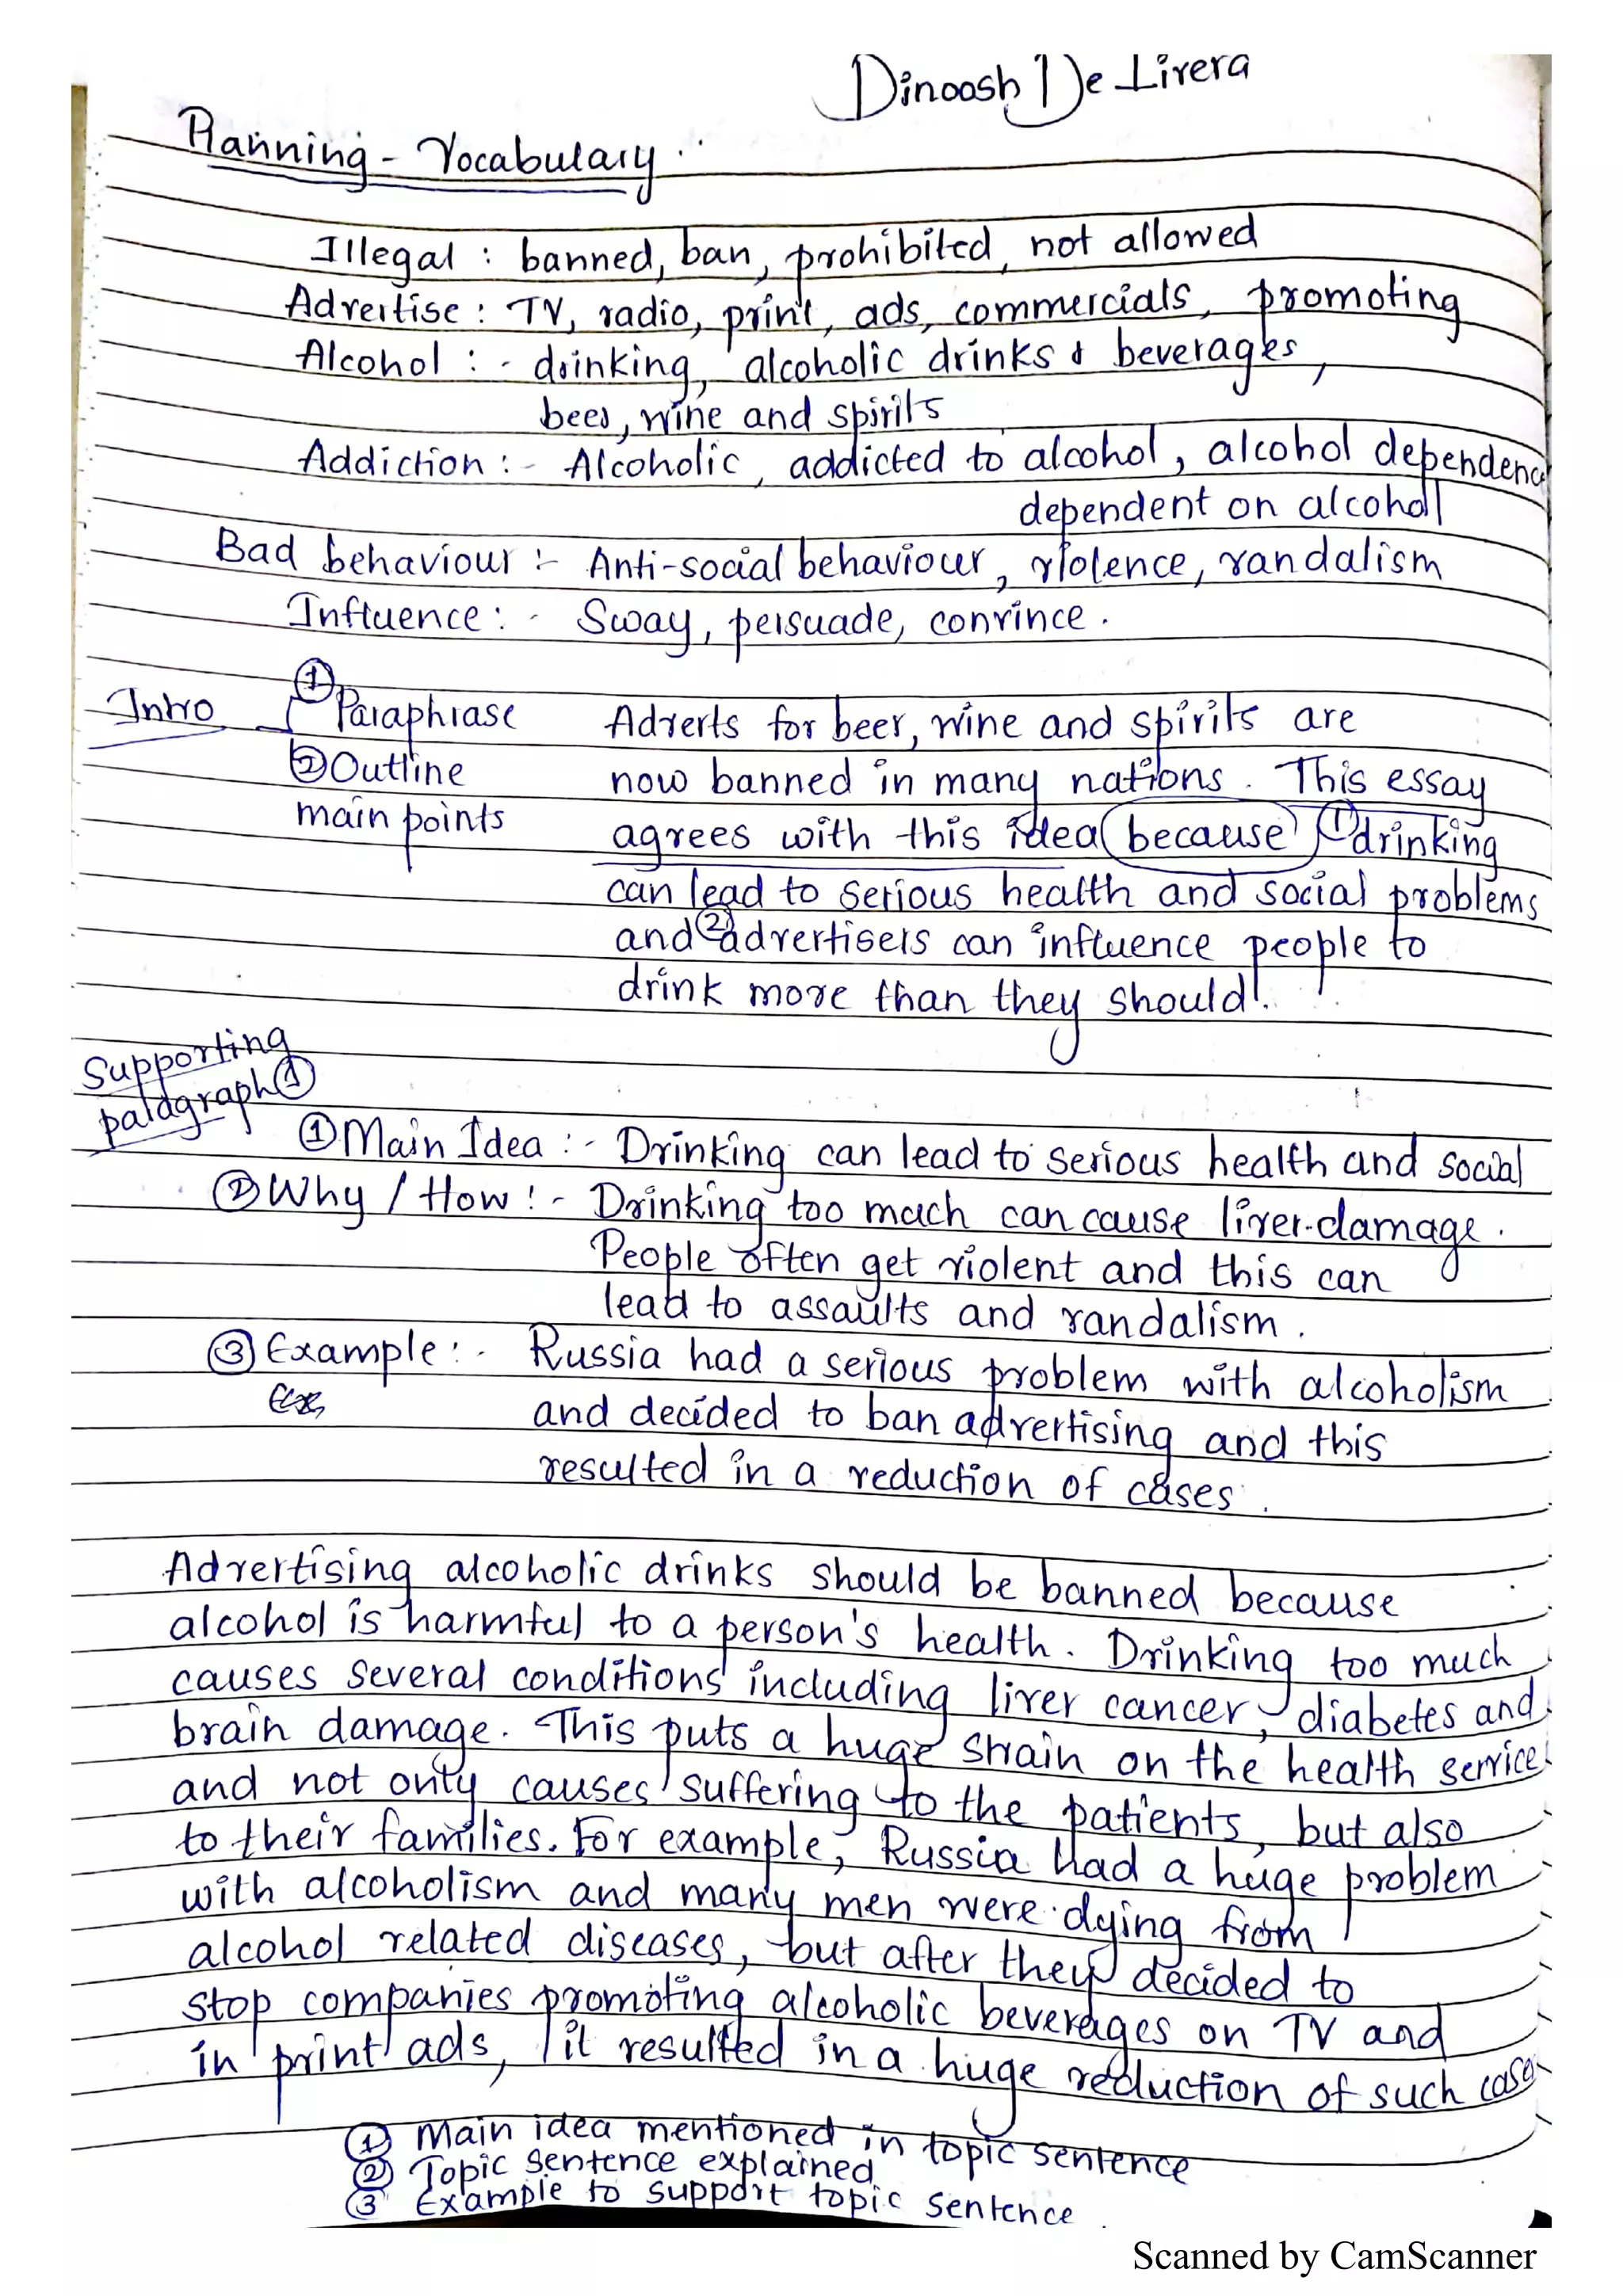 Dinoosh De Livera
Planning - Vocabulary
Illegal : banned, ban, prohibited, not allowed
Advertise : TV, radio, print, ads, commercials, promoting
Alcohol : - drinking, alcoholic drinks & beverages,
beer, wine and spirits
Addiction : - Alcoholic, addicted to alcohol, alcohol dependence
dependent on alcohol
Bad behaviour :- Anti-social behaviour, violence, vandalism
Influence : - Sway, persuade, convince.
Intro ① Paraphrase Adverts for beer, wine and spirits are
② Outline now banned in many nations. This essay
main points agrees with this idea because ① drinking
can lead to serious health and social problems
and ② advertisers can influence people to
drink more than they should.
Supporting
paragraph ①
① Main Idea : - Drinking can lead to serious health and social
② Why / How : - Drinking too much can cause liver damage.
People often get violent and this can
lead to assaults and vandalism.
③ Example : - Russia had a serious problem with alcoholism
Ex and decided to ban advertising and this
resulted in a reduction of cases.
Advertising alcoholic drinks should be banned because
alcohol is harmful to a person's health. Drinking too much
causes several conditions including liver cancer, diabetes and
brain damage. This puts a huge strain on the health service
and not only causes suffering to the patients, but also
to their families. For example, Russia had a huge problem
with alcoholism and many men were dying from
alcohol related diseases, but after they decided to
stop companies promoting alcoholic beverages on TV and
in print ads, it resulted in a huge reduction of such cases
① Main idea mentioned in topic sentence
② Topic sentence explained
③ Example to support topic sentence.
Scanned by CamScanner